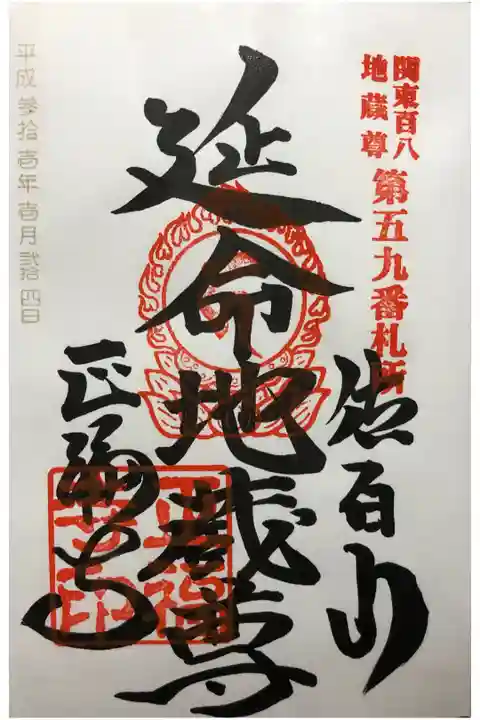 関東百八
地蔵尊
第五九番札所
佐白山
延命地蔵尊
正福寺
平成参拾壱年壱月弐拾四日